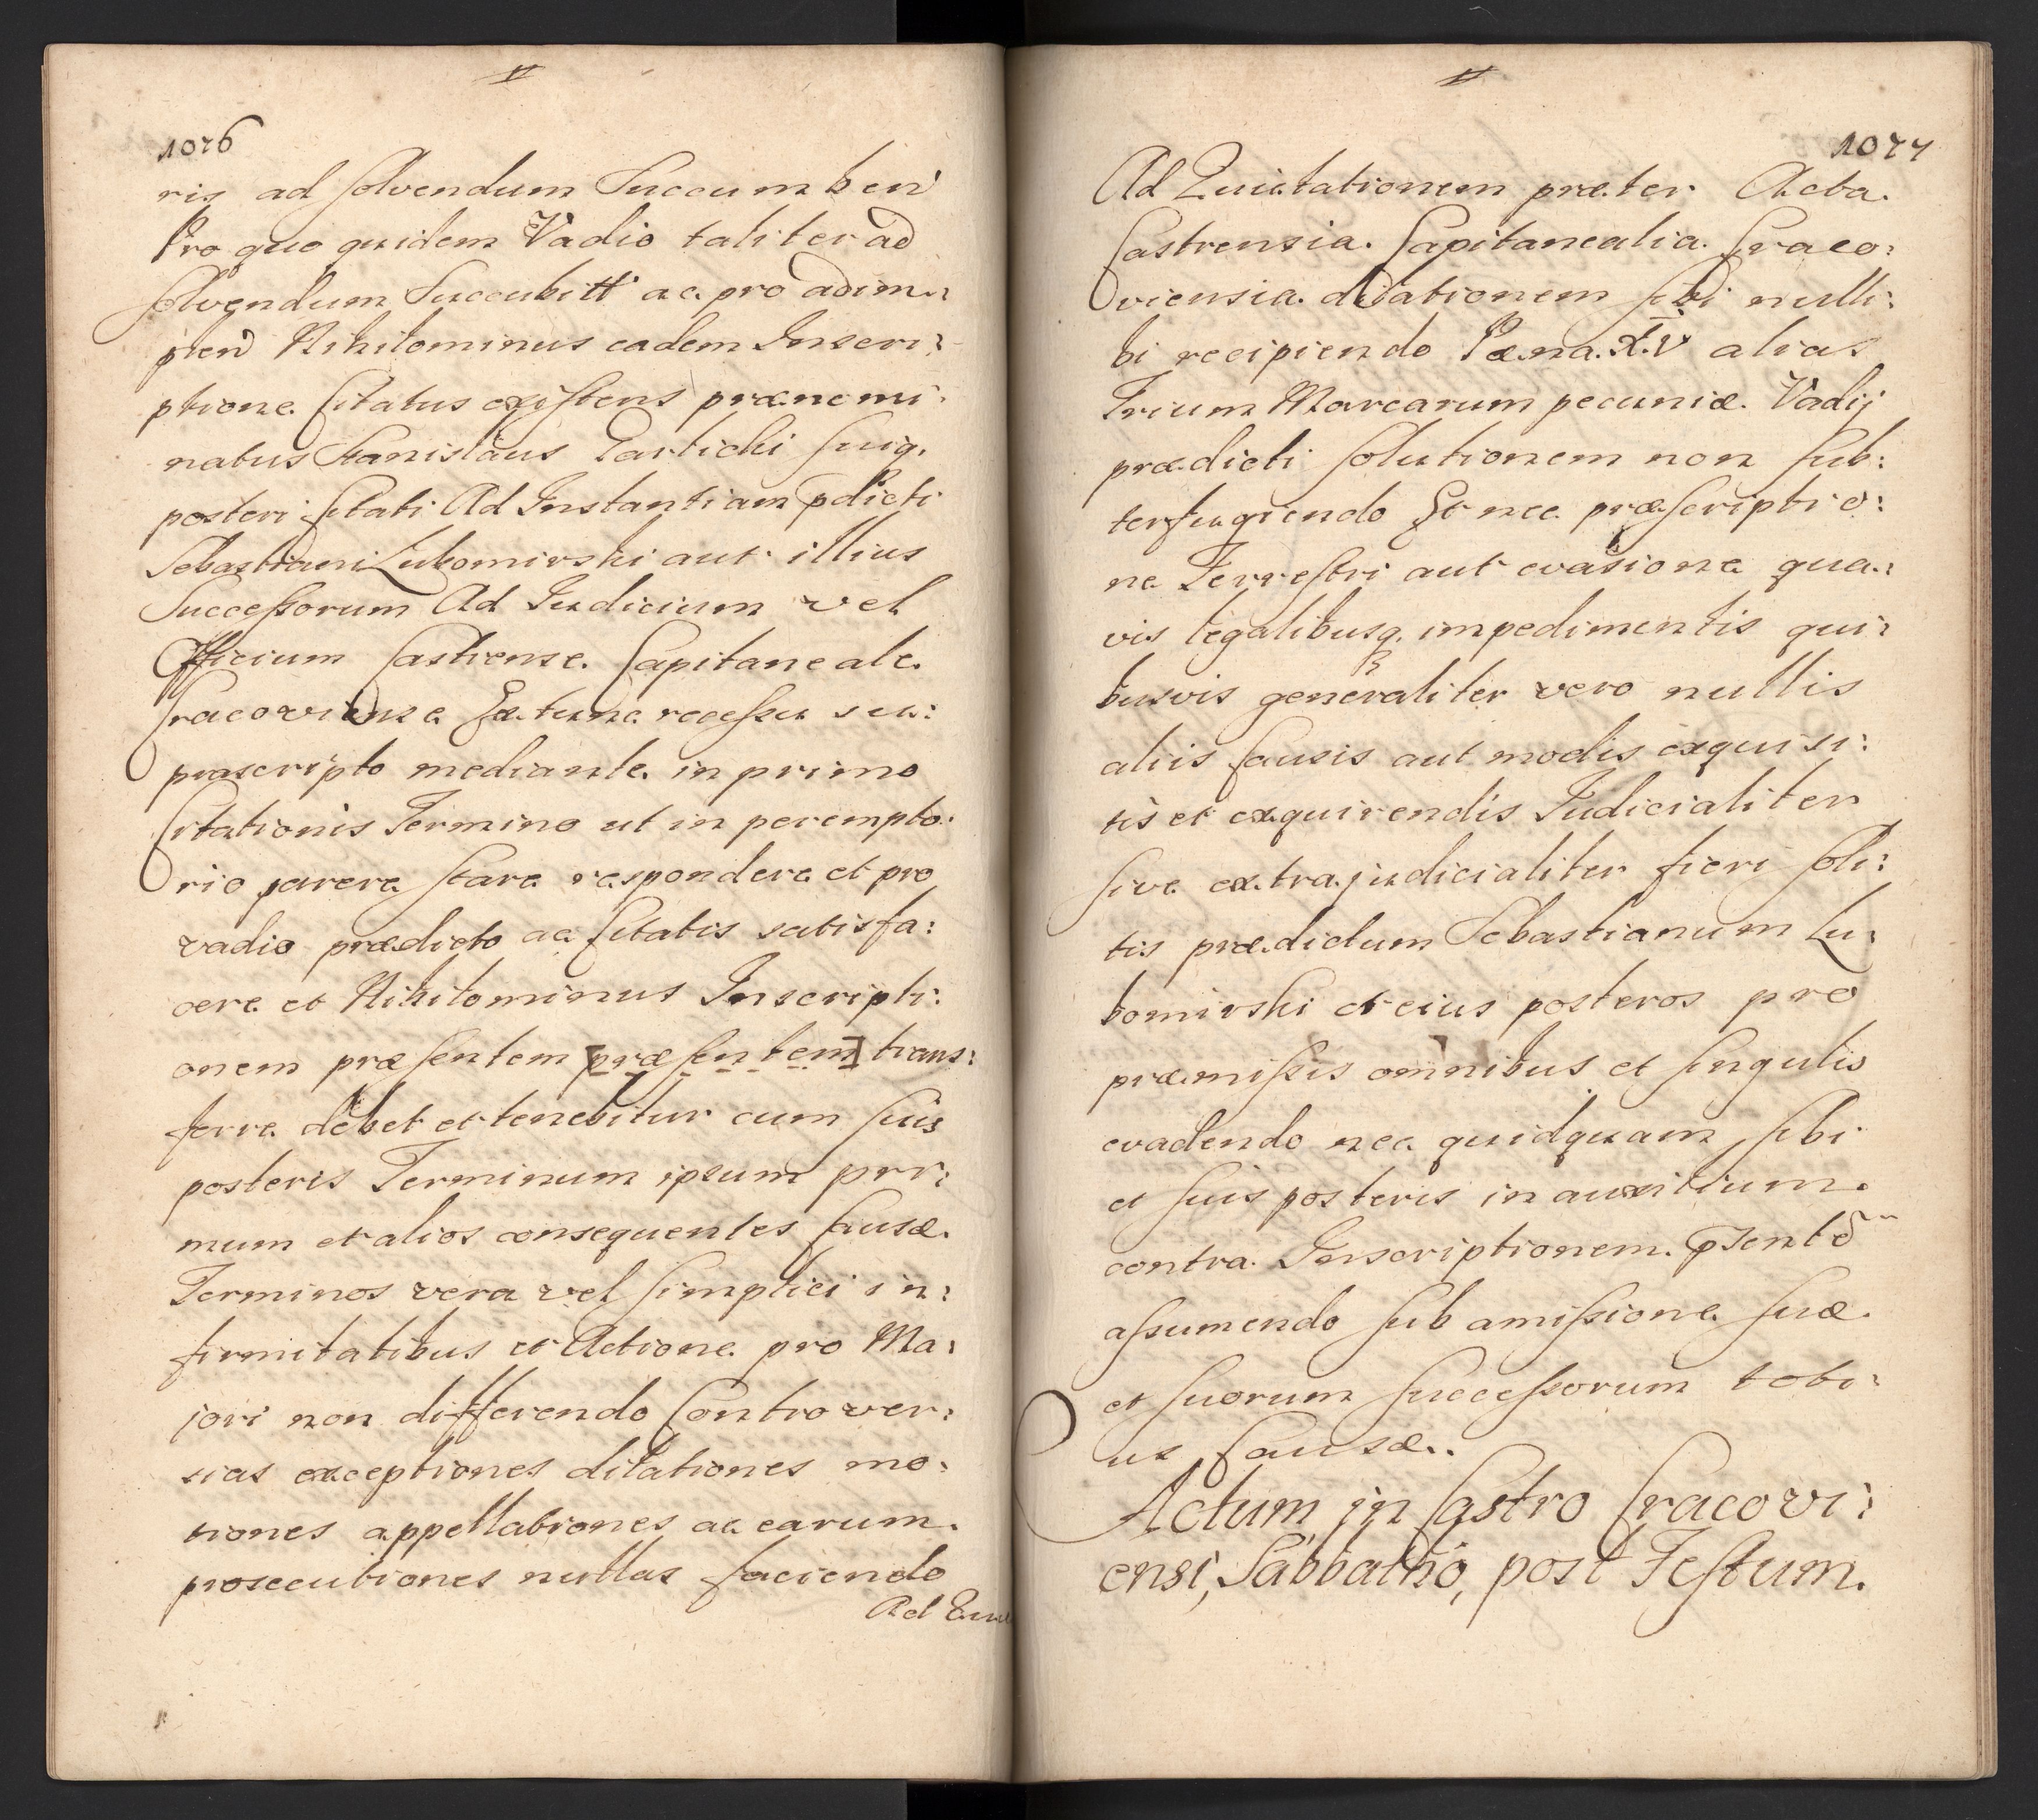 1076
ris ad solvendum Succumben
Pro quo quidem Vadio taliter ad
solvendum Succubitt ac pro adim:
plen Nihilominus eadem Inscri:
ptione Citatus existens prænomi:
natus Stanislaus Suiq.
posteri Citati Ad Instantiam pdicti
Sebastiani Lubomirski aut illius
Successorum Ad Iudicium vel
Officium Castrense Capitaneale
Cracoviense Ex tunc recessu su:
prascripto mediante in primo
Citationis Termino ut in perempto:
rio parere stare respondere et pro
vadio prædicto ac Citatis satisfa:
cere et Nihilominus Inscripti:
onem præsentem [præsentem] trans:
ferre debet et tenebitur cum suis
posteris Terminum ipsum pri:
mum et alios consequentes Causæ
Terminos vera vel simplici in:
firmitatibus et Actione pro Ma:
iori non differendo Controver:
sias exceptiones dilationes mo:
tiones appellationes ac earum
prosecutiones nullas faciendo
1077
Ad Quietationem præter Acta
Castrensia Capitanealia Craco:
viensia dilationem sibi nulli:
bi recipiendo Pæna X.V alias
Trium Marcarum pecuniæ Vadij
prædicti solutionem non sub:
terfugiendo Et nec præscriptio:
ne Terrestri aut evasione qua:
vis legalibusq. impedimentis qui:
busvis generaliter vero nullis
aliis Causis aut modis exquisi:
tis et exquirendis Iudicialiter
sive extrajudicialiter fieri soli:
tis prædictum Sebastianum Lu:
bomirski et eius posteros pro
præmissis omnibus et singulis
evadendo nec quidquam sibi
et suis posteris in auxilium
contra Inscriptionem
assumendo sub amissione suæ
et suorum successorum toti:
us Causæ.
Actum in Castro Cracovi:
ensi, Sabbatho, post Festum.